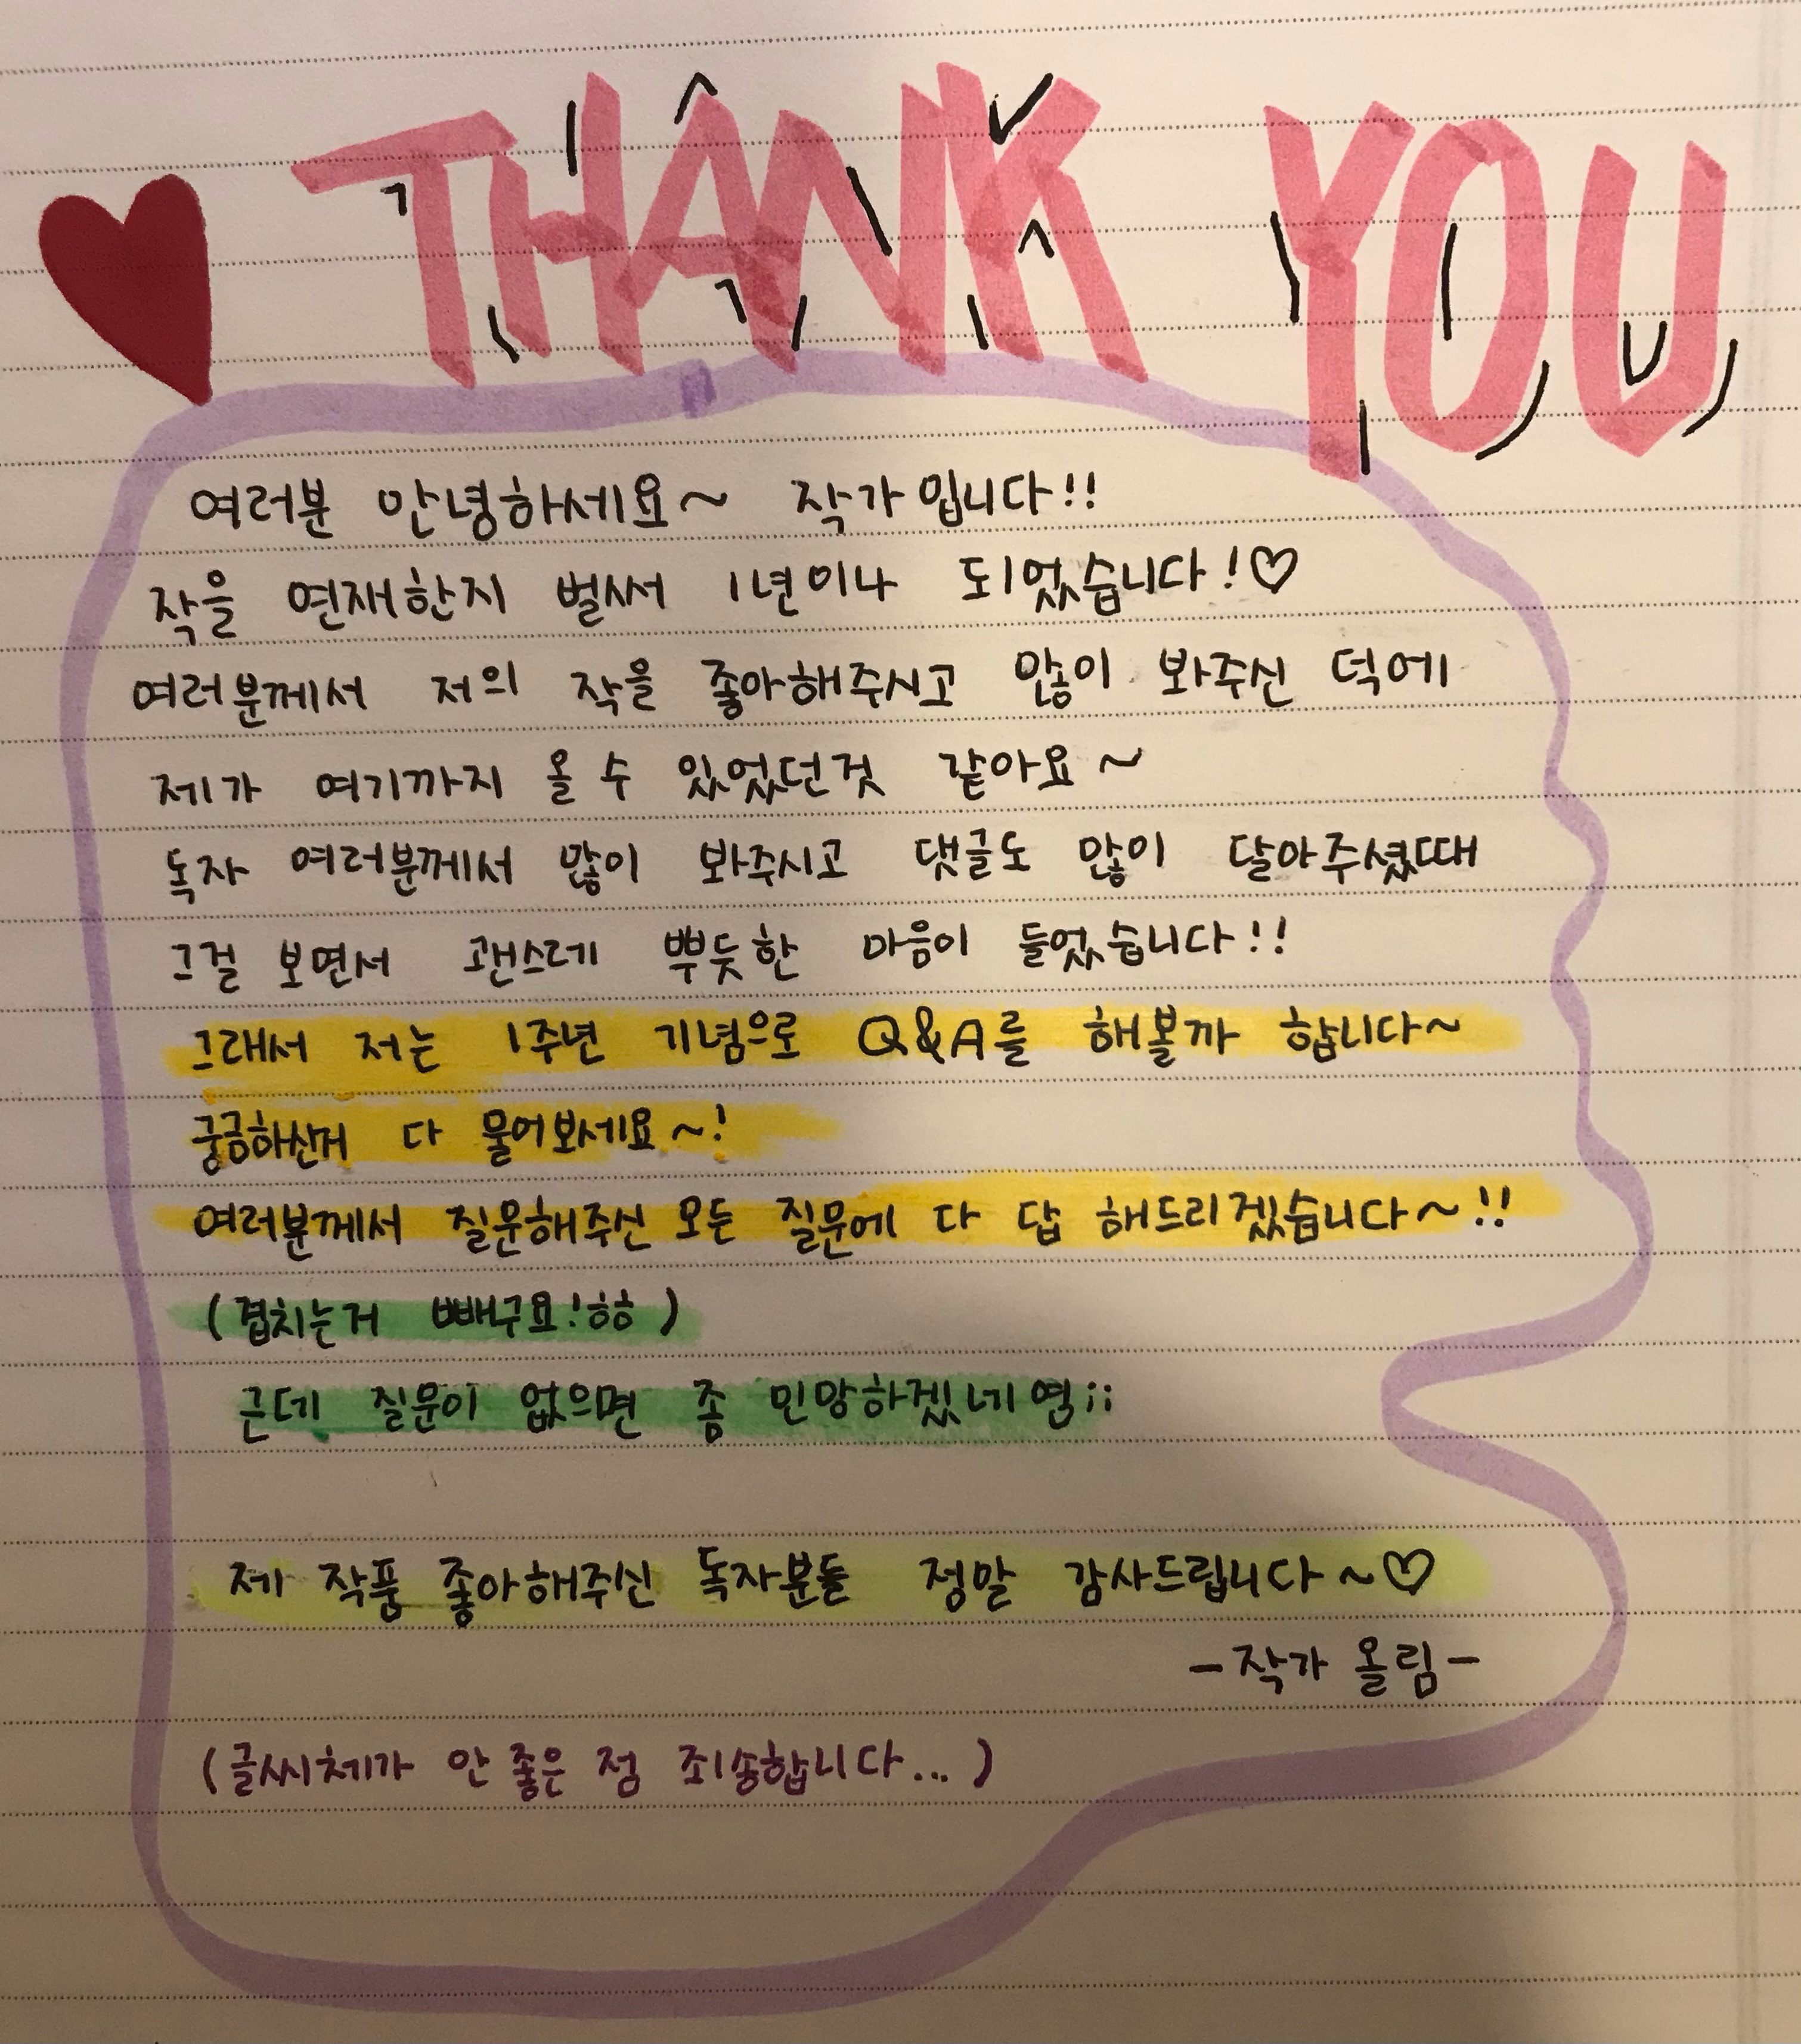 THANK YOU
여러분 안녕하세요~ 작가입니다!!
작을 연재한지 벌써 1년이나 되었습니다!♡
여러분께서 저의 작을 좋아해주시고 많이 봐주신 덕에
제가 여기까지 올 수 있었던것 같아요~
독자 여러분께서 많이 봐주시고 댓글도 많이 달아주셨때
그걸 보면서 괜스레 뿌듯한 마음이 들었습니다!!
그래서 저는 1주년 기념으로 Q&A를 해볼까 합니다~
궁금하신거 다 물어보세요~!
여러분께서 질문해주신 모든 질문에 다 답 해드리겠습니다~!!
(겹치는거 빼구요!ㅎㅎ)
근데 질문이 없으면 좀 민망하겠네염;;
제 작품 좋아해주신 독자분들 정말 감사드립니다~♡
-작가 올림-
(글씨체가 안 좋은 점 죄송합니다...)